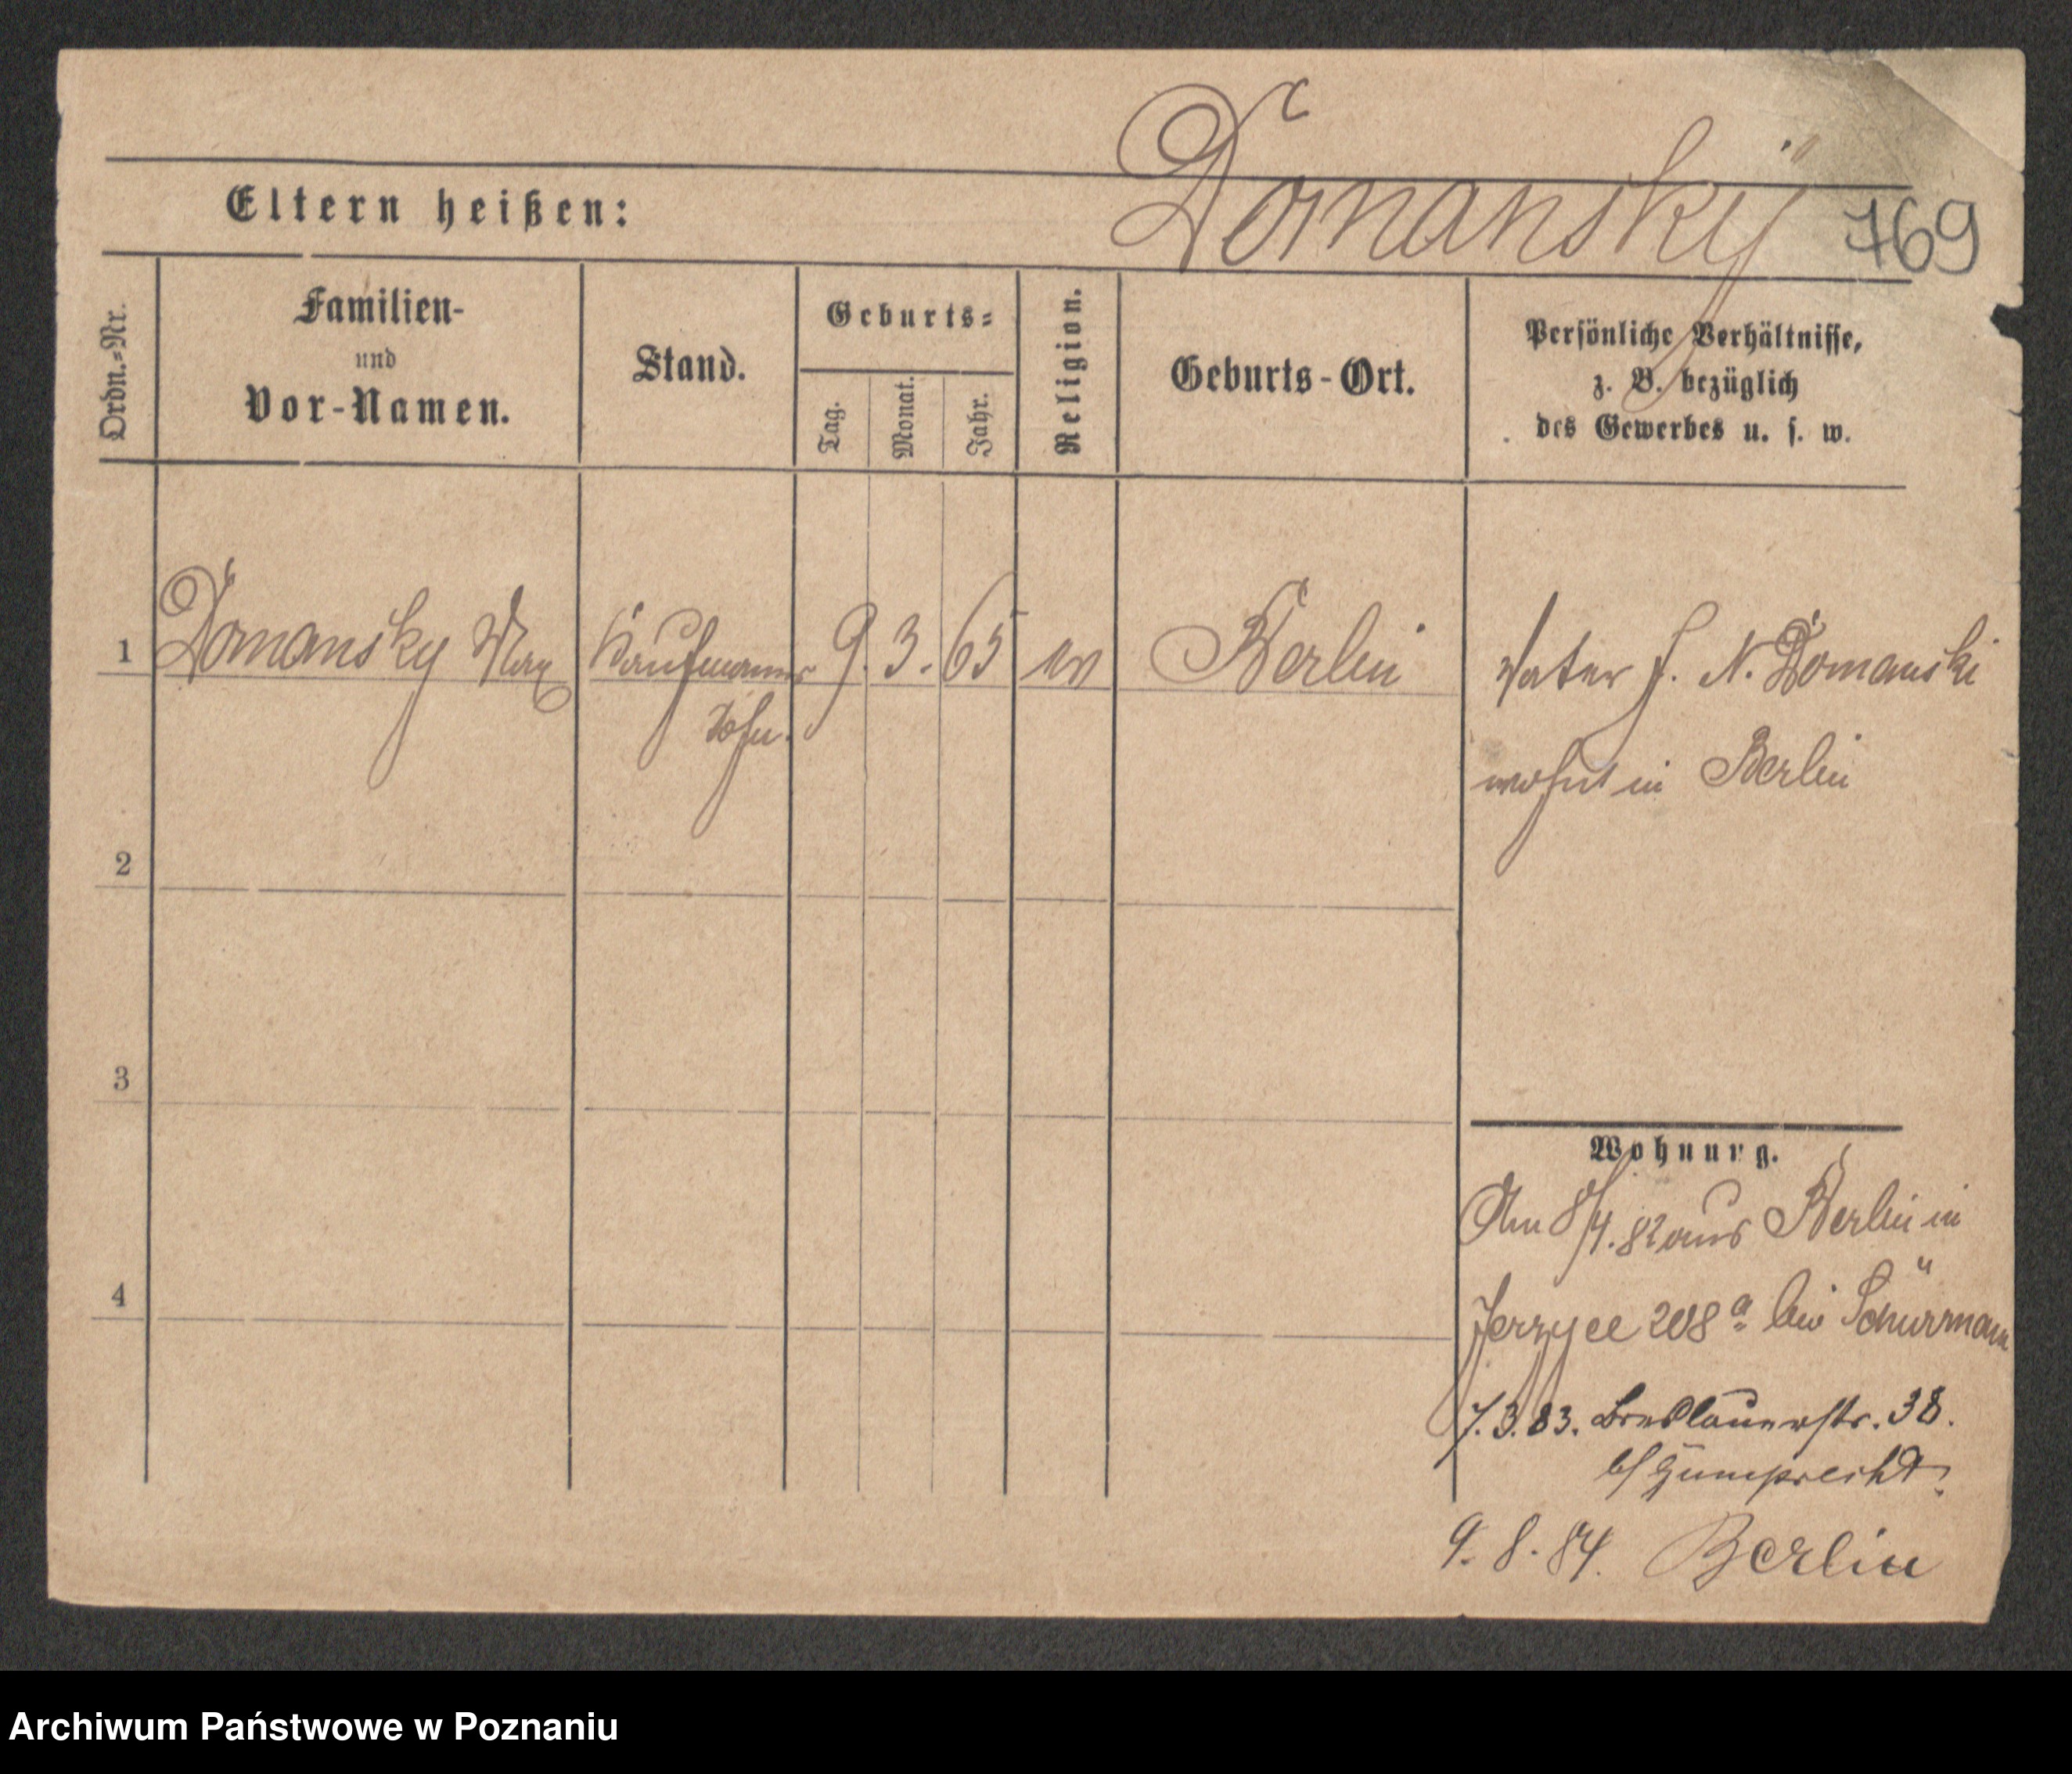 Domansky
769
Eltern heißen:
Ordn.-Nr.
Familien-
und
Vor-Namen.
Stand.
Geburts-
Tag.
Monat.
Jahr.
Religion.
Geburts-Ort.
Persönliche Verhältnisse,
z. B. bezüglich
des Gewerbes u. s. w.
1 Domansky Max Kaufmanns 9. 3. 65 ev Berlin Vater J. N. Domanski
Sohn.
wohnt in Berlin
2
3
Wohnung.
Am 8/4. 82 aus Berlin in
4
Jerzyce 208a bei Schürmann
7.3.83. Breslauerstr. 38.
b/ Gumprecht.
9. 8. 84. Berlin
Archiwum Państwowe w Poznaniu